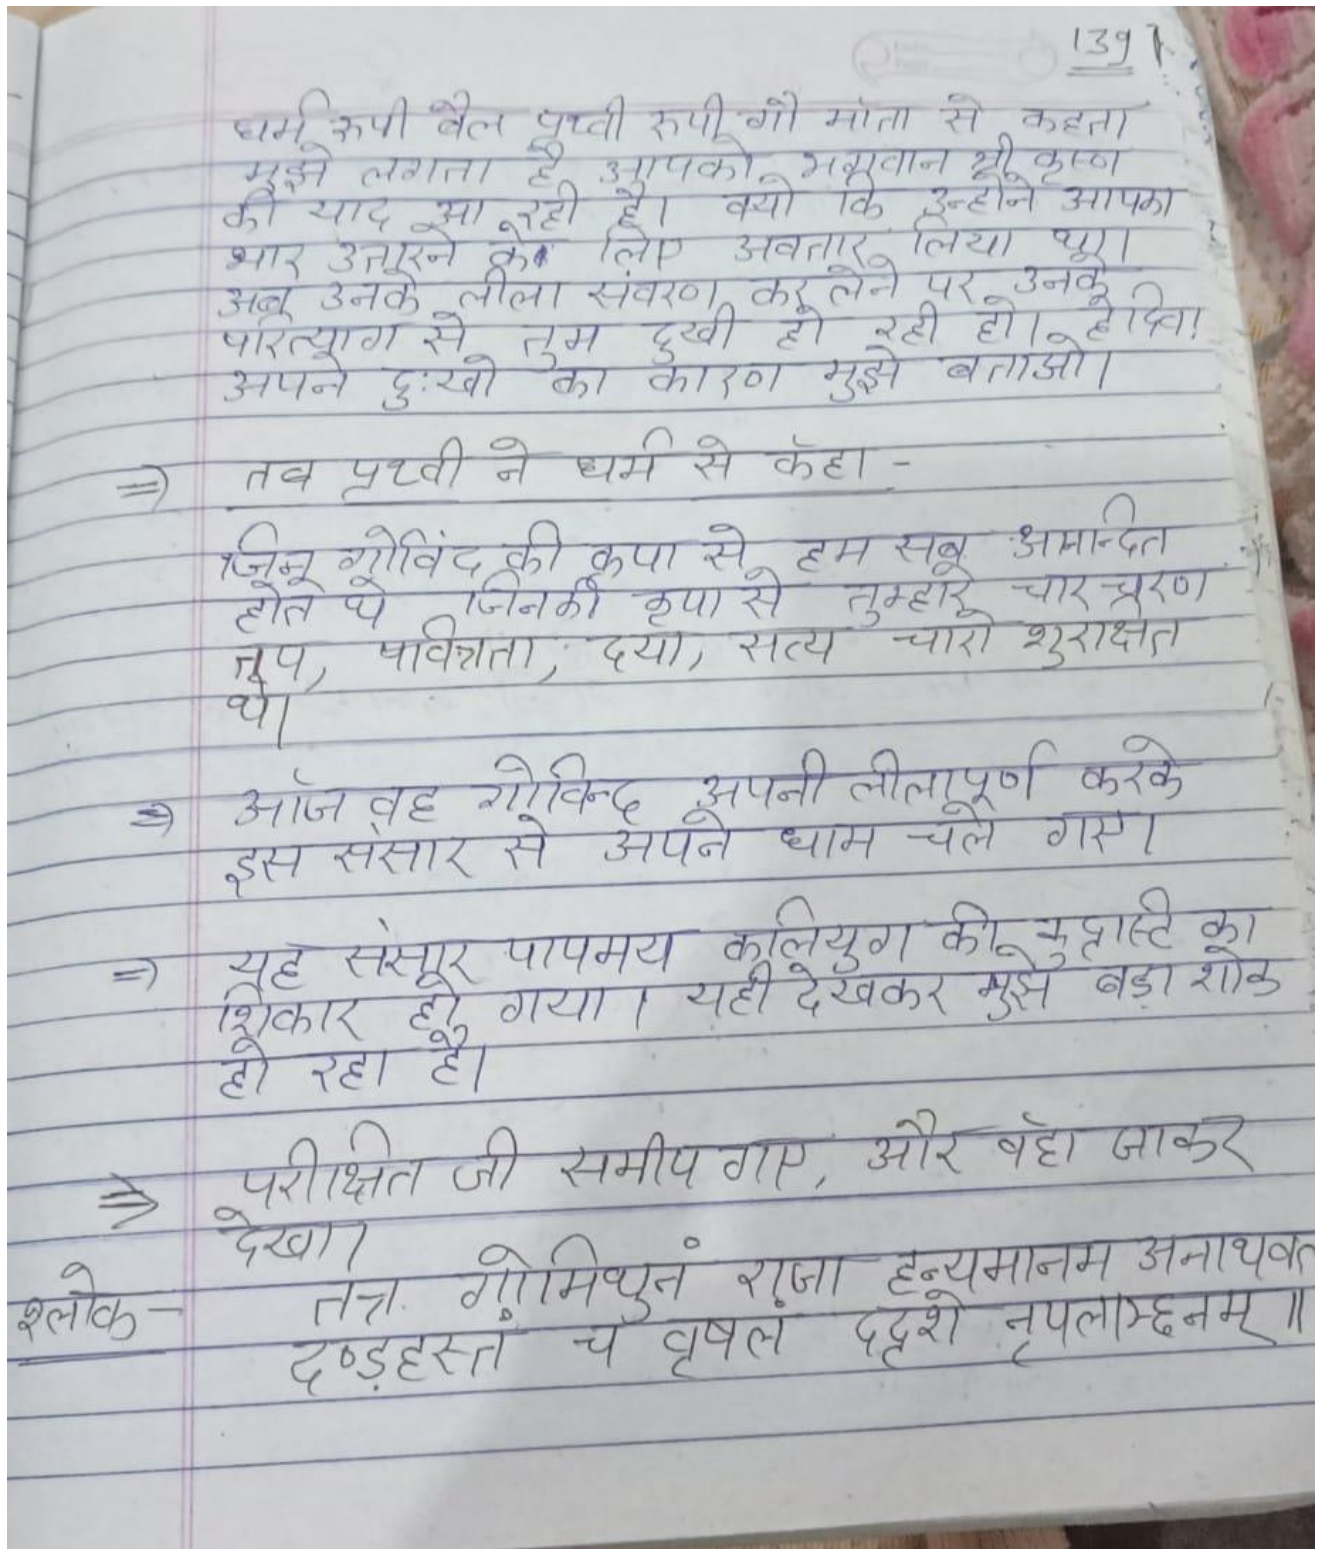 139
धर्म रुपी बैल पृथ्वी रुपी गौ माता से कहता
मुझे लगता है आपको भगवान श्री कृष्ण
की याद आ रही है। क्यो कि उन्होने आपका
भार उतारने के लिए अवतार लिया था।
अब उनके लीला संवरण कर लेने पर उनके
परित्याग से तुम दुखी हो रही हो। हे देवि!
अपने दुःखो का कारण मुझे बताओ।
=> तब पृथ्वी ने धर्म से कॅहा -
जिन गोविंद की कृपा से हम सब आनन्दित
होते थे जिनकी कृपा से तुम्हारे चार चरण
तप, पवित्रता, दया, सत्य चारो शुरक्षित
थे।
=> ऑज वह गोविन्द अपनी लीलापूर्ण करके
इस संसार से अपने धाम चले गए।
=> यह संसार पापमय कलियुग की कुदृष्टि का
शिकार हो गया। यही देखकर मुझे बड़ा शोक
हो रहा है।
=> परीक्षित जी समीप गए, और वॅहा जाकर
देखा।
श्लोक - तत्र गोमिथुनं राजा हन्यमानम अनाथवत
दण्ड़हस्तं च वृषलं ददृशे नृपलाम्छनम् ॥